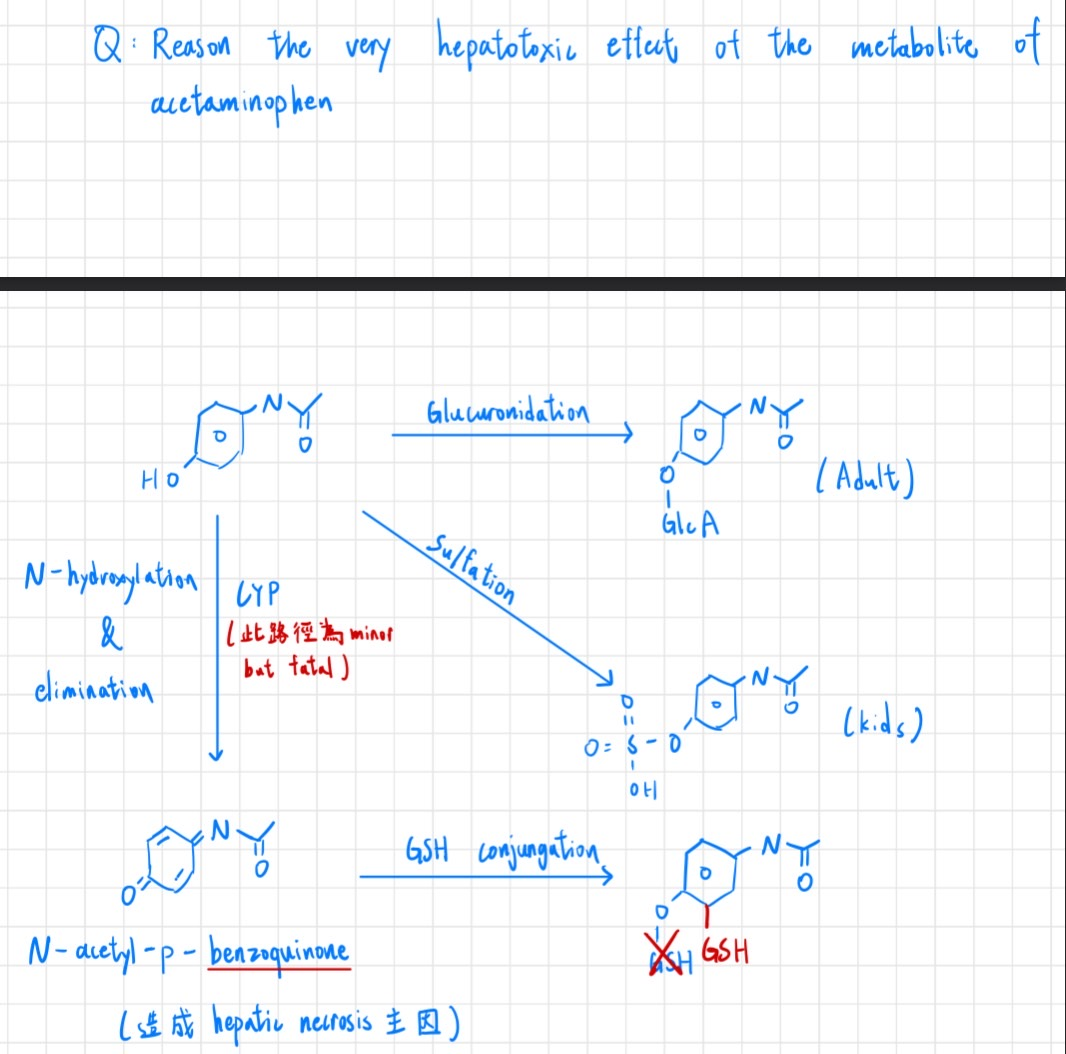 Q: Reason the very hepatotoxic effect of the metabolite of
acetaminophen
N
O
HO
Glucuronidation
N
O
O
GlcA
(Adult)
N-hydroxylation
&
elimination
CYP
(此路徑為minor
but fatal)
Sulfation
N
O
O
O=S-O
OH
(kids)
N
O
O
GSH conjungation
N
O
O
GSH
GSH
N-acetyl-p-benzoquinone
(造成 hepatic necrosis 主因)